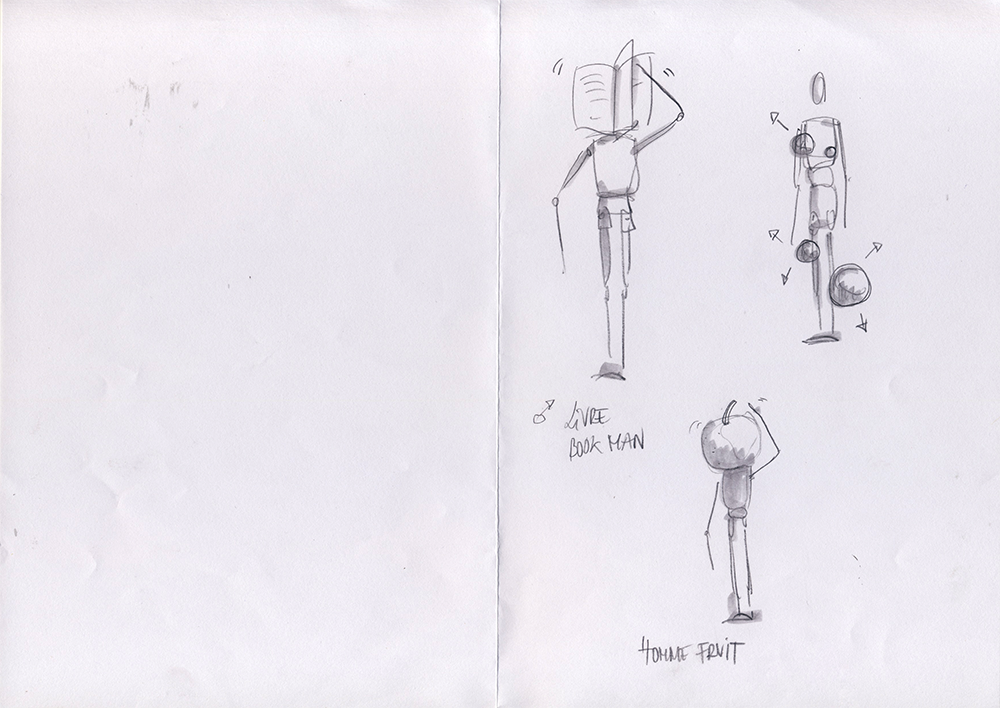 ♂ LIVRE
BOOK MAN
HOMME FRUIT